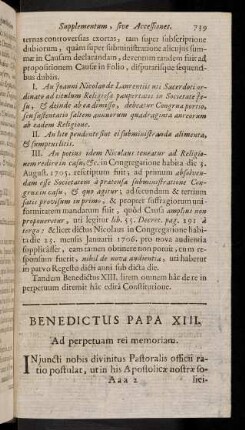 Supplementum, sive Accessiones. 739
ternus controversias exortas, tam super subscriptione
dubiorum, quàm super subministratione alicujus summæ
in Causam declarandam, deremum tandem fuit ad
propositionem Causæ in Folio, disputatisque sequentibus
dubiis.
I. An Joanni Nicolao de Laurentiis uti Sacerdoti ordinato
ad titulum Religiosæ paupertatis in Societate Jesu,
& deinde ab ea dimisso, debeatur Congrua portio,
seu sustentatio saltem annuorum quadraginta aureorum
ab eadem Religione.
II. An lite pendente sint ei subministranda alimenta,
& sumptus litis.
III. An potius idem Nicolaus teneatur ad Religionem
redire in casu, &c. in Congregatione habita die 3.
August. 1705. rescriptum fuit, ad primum absolvendam
esse Societatem à prætensa subministratione Congruæ in
casu, & quo ad secundum & tertium
satis provisum in primo, & propter suffragiorum uniformitatem
mandatum fuit, quòd Causa amplius non
proponeretur, uti legitur lib. 55. Decret. pag. 291 à
tergo; & licèt dictus Nicolaus in Congregatione habita
die 23. mensis Januarii 1706. pro nova audientia
supplicasset, eam tamen obtinere non potuit, cùm responsum
fuerit, nihil de nova audientia, uti habetur
in parvo Regesto dicti anni sub dicta die.
Tandem Benedictus XIII. litem omnem hac de re in
perpetuum diremit hâc editâ Constitutione.
BENEDICTUS PAPA XIII.
Ad perpetuam rei memoriam.
INjuncti nobis divinitus Pastoralis officii ratio
postulat, ut in his Apostolicæ nostræ so-
Aaa 2 lici-